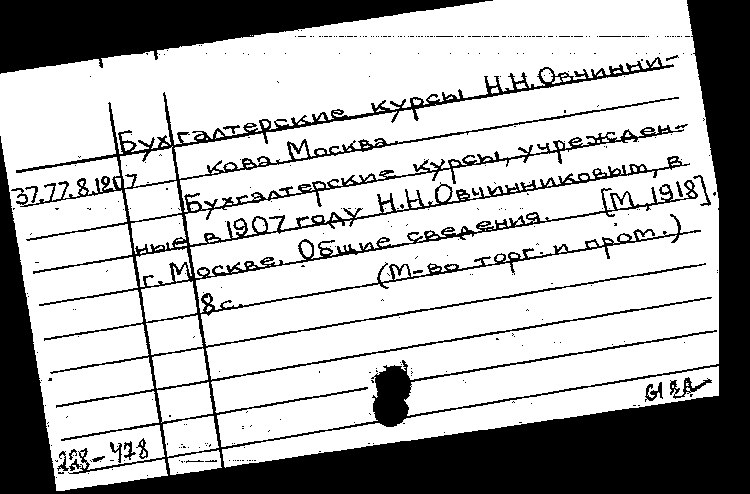 Бухгалтерские курсы Н.Н.Овчинни-
кова. Москва.
37.77.8.1207
Бухгалтерские курсы, учрежден-
ные в 1907 году Н.Н.Овчинниковым, в
г. Москве. Общие сведения. [М., 1918].
8 с. (М-во торг. и пром.)
228-478